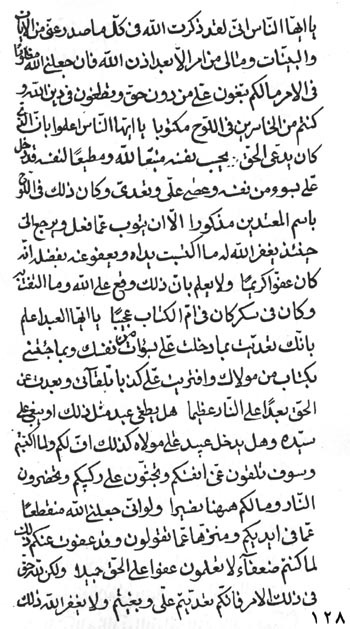 يا ايها الناس انى لقد ذكرت الله فى كل ما صدر عنى من الايات
والبينات ومالى من امر الا بعد اذن الله فان جعلنى الله مظلوما
فى الامر مالكم تبغون على من دون حق وتظلمون فى دين الله و
كنتم من الخاسرين فى اللوح مكتوبا يا ايها الناس اعلموا بان الشيخ
كان يدعى الحق يحب نفسه متبعا لله ومطيعا لنفسه قد دخل
على بسوء من نفسه وعصى على وتعدى وكان ذلك فى اللوح
باسم المعتدين مذكورا الا ان يتوب عما فعل ويرجع الى
حينئذ يغفر الله له ما اكتسبت يداه ويعفو عنه بفضل انه
كان عفوا كريما ولا يعلم بان ذلك وقع على الله وما التفت به
وكان فى سكر كان فى ام الكتاب عجيبا يا ايها العبد اعلم
بانك تعديت بما دخلت على بسوات من نفسك وبما جئتنى
بكتاب من مولاك وافتريت على كذبا تلقائى وبعدت عن
الحق بعدا على النار عظيما هل يطغى عبد مثل ذلك او يبغى على
سيده وهل يدخل عبيد على مولاه كذلك اف لكم ولما اكتسبتم
وسوف تلقون عن انفسكم وتجثون على ركبكم وتحضرون
النار ومالكم ههنا نصيرا ولو انى جعلنى الله منقطعا
عما فى ايديكم ومنزها عما تقولون وقد عفوت عنكم كذلك
لما كنتم ضعفاء لا تعلمون عفوا على الحق جميلا ولكن
فى ذلك الامر فانكم تعديتم على وبغيتم ولا يغفر الله ذلك
١٢٨